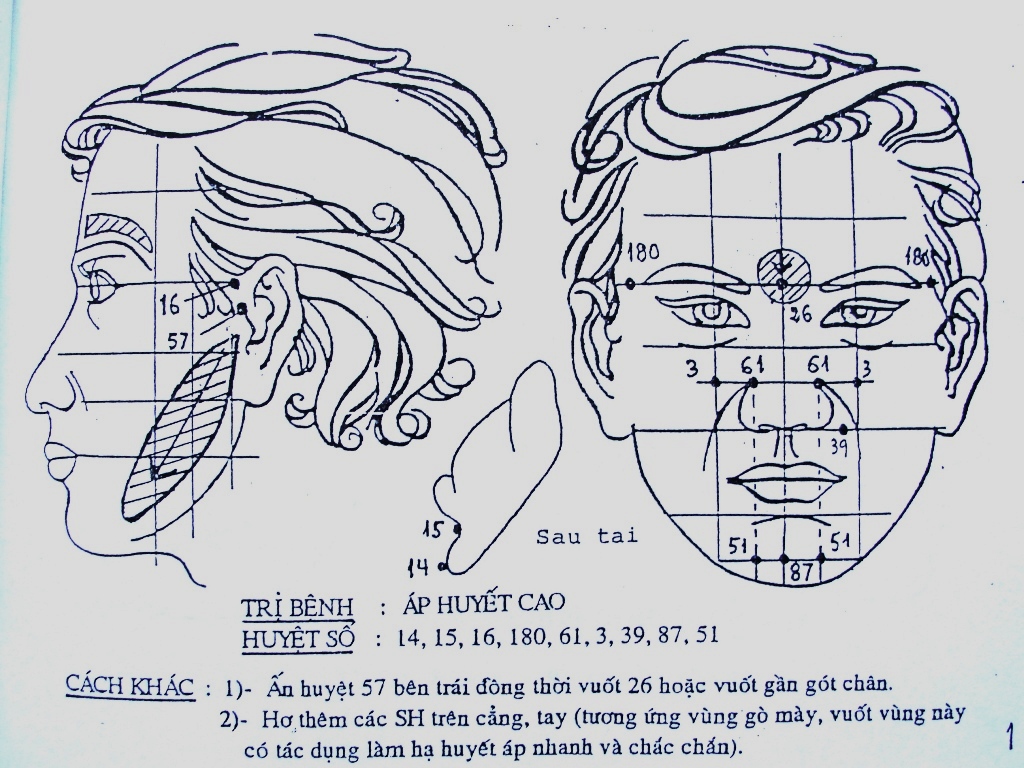 180
180
16
26
57
3
61
61
3
39
15
Sau tai
51
51
14
87
TRỊ BỆNH : ÁP HUYẾT CAO
HUYỆT SỐ : 14, 15, 16, 180, 61, 3, 39, 87, 51
CÁCH KHÁC : 1)- Ấn huyệt 57 bên trái đồng thời vuốt 26 hoặc vuốt gần gót chân.
2)- Hơ thêm các SH trên cẳng, tay (tương ứng vùng gò mày, vuốt vùng này
có tác dụng làm hạ huyết áp nhanh và chắc chắn).
1